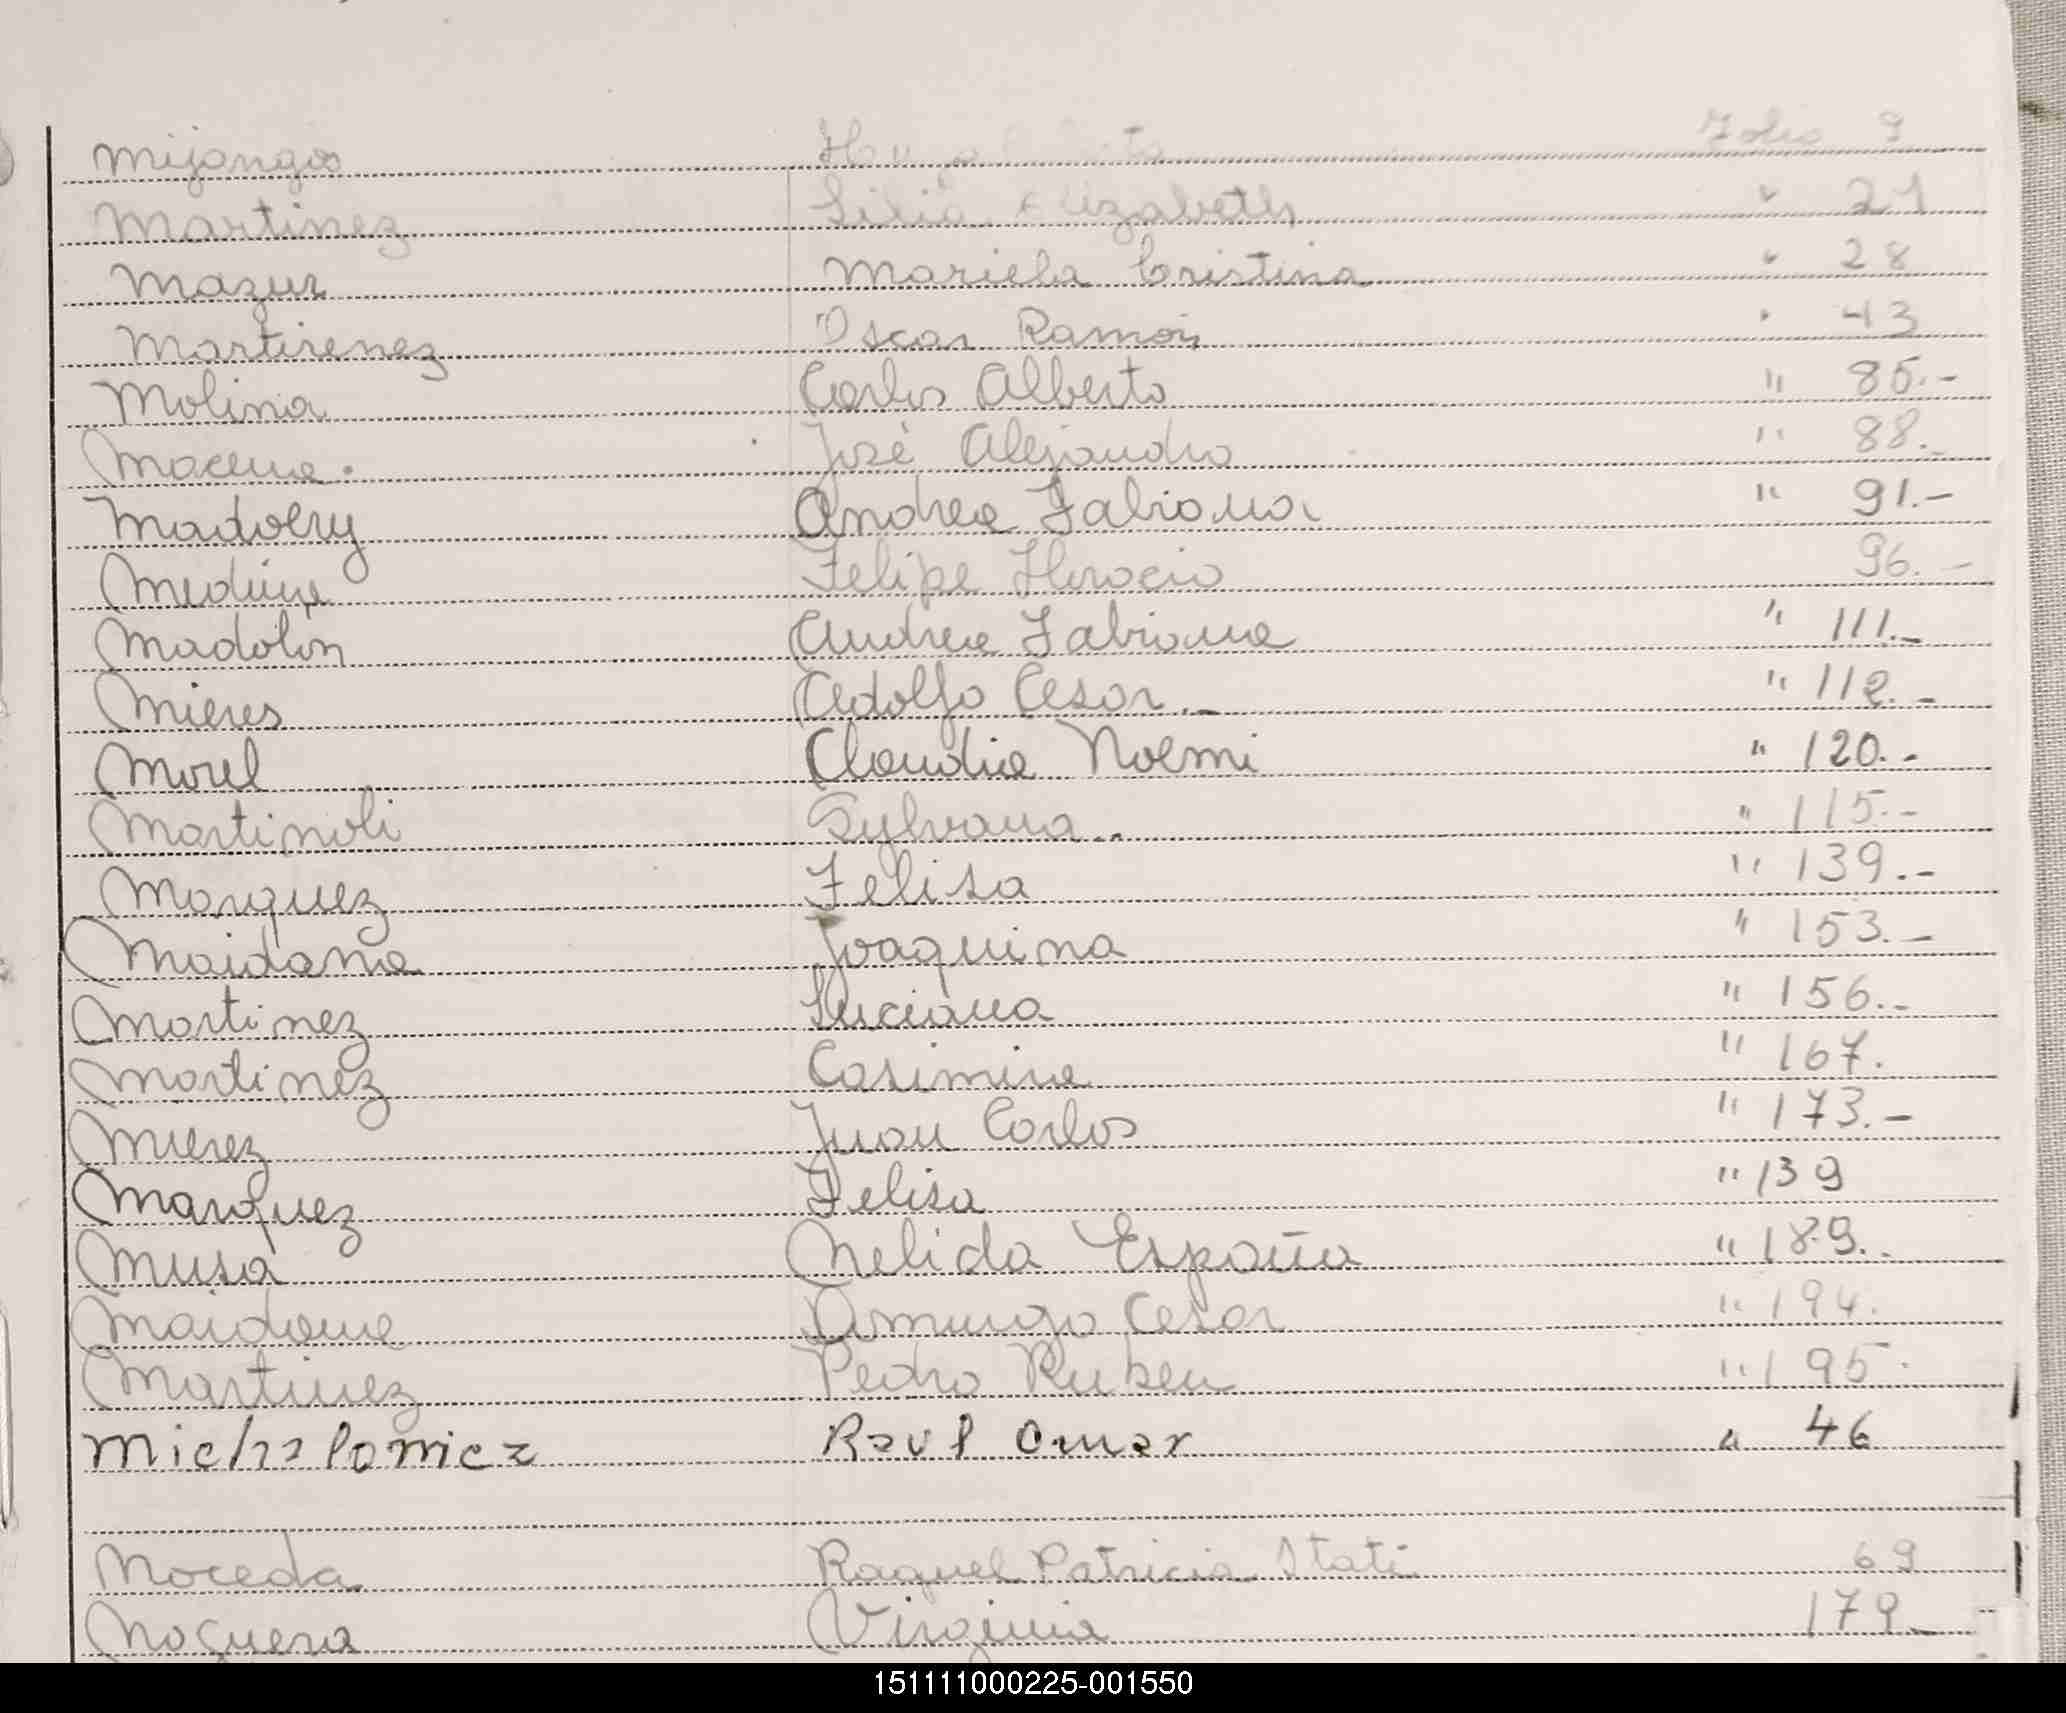 Mijangos Hugo Folio 9
Martinez Lilia Elizabeth " 21
Mazur Mariela Cristina " 28
Martirenez Oscar Ramón " 43
Molina Carlos Alberto " 85.-
Macena. José Alejandro " 88.-
Madoery Andrea Fabiana " 91.-
Medina Felipe Horacio 96.-
Madolon Andrea Fabiana " 111.-
Mieres Adolfo Cesar.- " 112.-
Morel Claudia Noemi " 120.-
Martinoli Sylvana.. " 115.-
Marquez Felisa " 139.-
Maidana Joaquina " 153.-
Martinez Luciana " 156.-
Martinez Casimira " 167.
Mierez Juan Carlos " 173.-
Marquez Felisa " 139
Musa Nelida España " 189..
Maidana Domingo Cesar " 194.
Martinez Pedro Ruben " 195.
Michalowicz Raul Omar " 46
Noceda Raquel Patricia Itati 69
Noguera Virginia 179.-
151111000225-001550